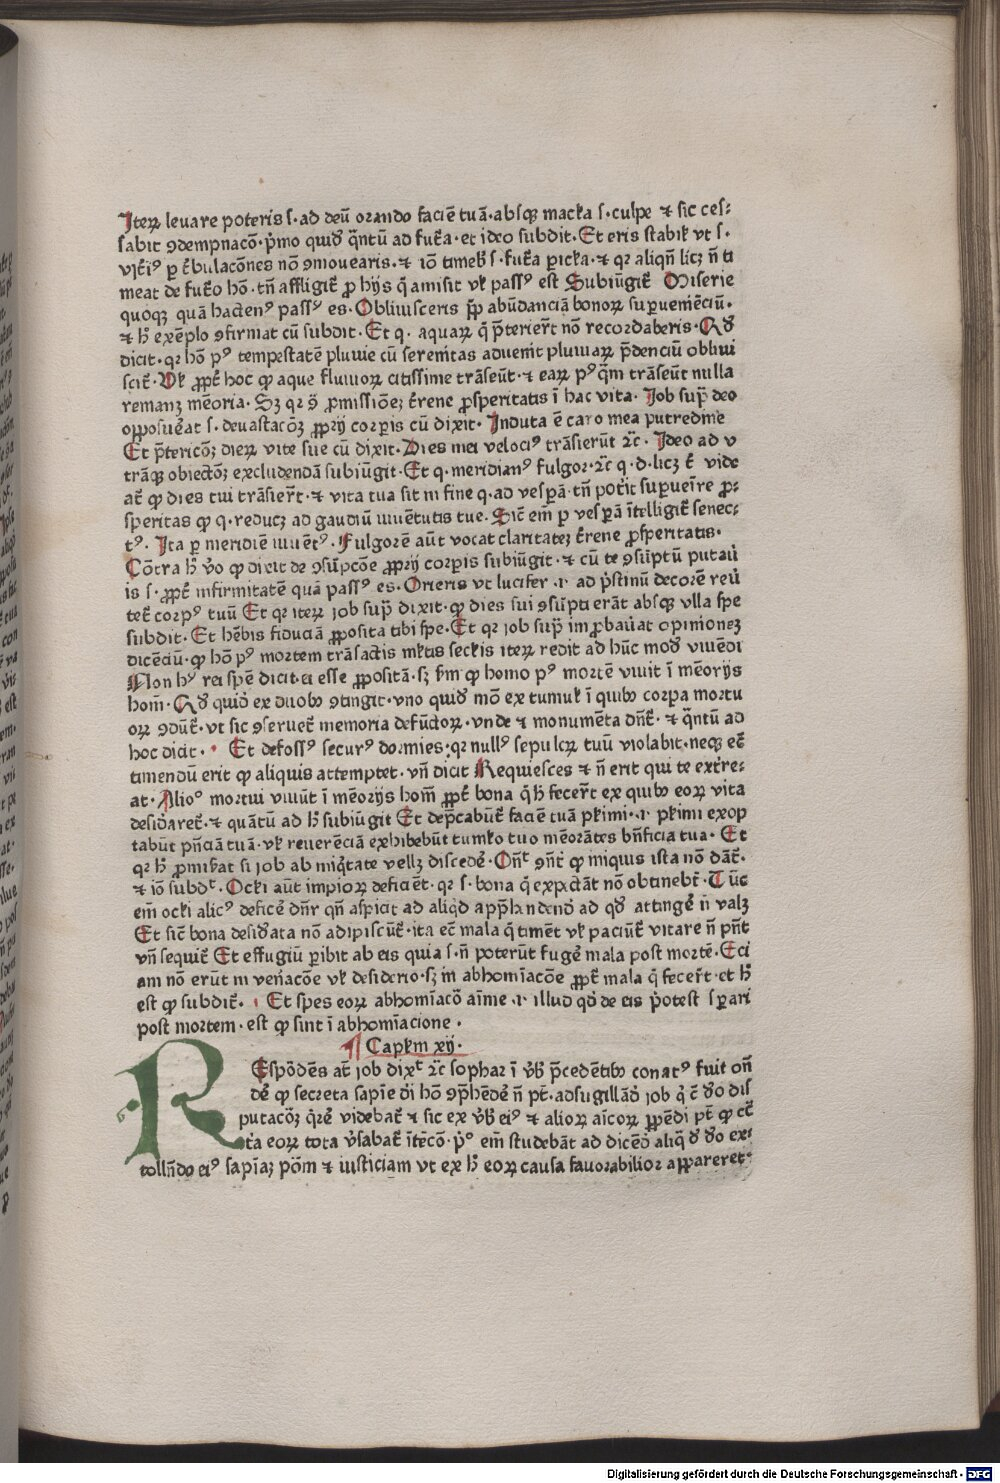 Iteꝝ levare poteris s· ad deū orando faciē tuā· absqꝫ mac̄la s· culpe ⁊ sic ces⸗
sabit ꝯdempnac̄o· p̄mo quid̄ q̄ntū ad fut̄a· et ideo subdit· Et eris stabil̄ vt s·
p t̄bulac̄ones nō ꝯmovearis· ⁊ iō timeb̄ s· fut̄a pic̄la· ⁊ qꝛ aliqn̄ licꝫ n̄ ti
meat de fut̄o hō· tn̄ affligit̄ ꝓ hijs q̄ amisit vl̄ passꝰ est Subiūgit̄ Miserie
quoqꝫ quā hactenꝰ passꝰ es· Obliuisceris p̄p abūdanciā bonoꝝ supueniēciū·
⁊ h̄ exēplo ꝯfirmat cū subdit· Et q· aquaꝝ q̄ p̄terier̄t nō recordaberis· Qd̄
dicit· qꝛ hō pꝰ tempestatē pluuie cū serenitas aduenit pluuiaꝝ p̄denciū obliui
scit̄· Vl̄ ꝓpt̄ hoc ꝙ aque fluuioꝝ citissime trāseūt· ⁊ eaꝝ pꝰq̄m trāseūt nulla
remanꝫ mēoria· Sꝫ qꝛ ꝓmissiōeꝫ t̄rene ꝓsperitatis ī hac vita· Job sup̄ deo
opposuēat s· deuastac̄oꝫ ꝓprij corpis cū dixit· Induta ē caro mea putredine
Et p̄teric̄oꝫ dieꝝ vite sue cū dixit· Dies mei velociꝰ trāsierūt ⁊c̄· Ideo ad v
trāqꝫ obiectōꝫ excludendā subiūgit· Et q· meridianꝰ fulgor ⁊c̄ q· d· licꝫ t̄ vide
at̄ ꝙ dies tui trāsier̄t· ⁊ vita tua sit in fine q· ad vespā· tn̄ pot̄it supueīre ꝓ⸗
speritas ꝙ q· reducꝫ ad gaudiū iuuētutis tue· Sic̄ em̄ p vespā ītelligit̄ senec⸗
tꝰ· Ita p meridiē iuuētꝰ· Fulgorē aūt vocat claritateꝫ t̄rene ꝓsperitatis·
Cōtra h̄ v̄o ꝙ dixit de ꝯsūpcōe ꝓprij corpis subiūgit· ⁊ cū te ꝯsūptū putau̇
is s· ꝓpt̄ infirmitatē quā passꝰ es· Orieris vt lucifer ·i· ad p̄stinū decorē reu̇
tet̄ corpꝰ tuū Et qꝛ iteꝝ job sup̄ dixit· ꝙ dies sui ꝯsūpti erāt absqꝫ vlla spe
subdit· Et hēbis fiduciā ꝓposita tibi spe· Et qꝛ job sup̄ improbau̇at opinioneꝫ
dicēciū· ꝙ hō pꝰ mortem trāsactis ml̄tis sec̄lis iteꝝ redit ad hūc mod̄ viuēdi
Non hꝰ rei spē dicit ei esse ꝓpositā· sꝫ s̄m ꝙ homo pꝰ mortē viuit ī mēorijs
hom̄· Qd̄ quid̄ ex duobꝰ ꝯtingit· vno quid̄ mō ex tumul̄ ī quibꝰ corpa mortu
oꝝ ꝯdūt̄· vt sic ꝯseruet̄ memoria defūctoꝝ· vnde ⁊ monumēta dn̄t̄· ⁊ q̄ntū ad
hoc dicit· · Et defossꝰ securꝰ dormies· qꝛ nullꝰ sepulcꝝ tuū violabit· neqꝫ et̄
timendū erit ꝙ aliquis attemptet· vn̄ dicit Requiesces ⁊ n̄ erit qui te ext̄re⸗
at· Alioº mortui viuūt ī mēorijs hom̄ ꝓpt̄ bona q̄ h̄ fecer̄t ex quibꝰ eoꝝ vita
desid̄aret̄· ⁊ quātū ad h̄ subiūgit Et dep̄cabūt̄ faciē tuā pl̄imi· ·i· pl̄imi exop
tabūt p̄n̄ciā tuā· vl̄ reuerēciā exhibebūt tuml̄o tuo mēorātes bn̄ficia tua· Et
qꝛ h̄ ꝓmis̄at si job ab iniq̄tate vellꝫ disced̄e· On̄t̄ ꝯn̄t̄ ꝙ iniquis ista nō dāt̄·
⁊ iō subdᵗ· Oc̄li aūt impioꝝ deficiēt· qꝛ s· bona q̄ expectāt nō obtinebt̄· Tūc
em̄ oc̄li alicꝰ defic̄e dn̄r qn̄ aspicit ad aliq̄d app̄hendend̄ ad qd̄ attinḡe n̄ valꝫ
Et sic̄ bona desid̄ata nō adipiscūt̄· ita ec̄ mala q̄ timēt vl̄ paciūt̄ vitare n̄ pn̄t
vn̄ sequit̄ Et effugiū pibit ab eis quia s· n̄ poterūt fuḡe mala post mortē· Eci
am nō erūt in venac̄oe vl̄ desiderio· sꝫ in abhomīac̄oe ꝓpt̄ mala q̄ fecer̄t· et h̄
est ꝙ subdit̄· · Et spes eoꝝ abhomīac̄o aīme ·i· illud qd̄ de eis p̄otest spari
post mortem· est ꝙ sint ī abhomīacione·
¶ Capl̄m xij·
REspōdēs at̄ job dixᵗ ⁊c̄ sophar ī v̄b p̄cedētibꝰ conatꝰ fuit on̄
d̄e ꝙ secreta sapīe dī hō ꝯp̄hēd̄e n̄ pt̄· adsugillād̄ job q̇ c̄ d̄o dis
putac̄oꝫ q̄r̄e videbat̄ ⁊ sic ex v̄b eiꝰ ⁊ alioꝝ aīcoꝝ ppēdi pt̄ ꝙ ct̄
t̄a eoꝝ tota v̄sabat̄ ītēc̄o· pº em̄ studebāt ad dicēd̄ aliq̄ d̄ d̄o ex⸗
tolln̄do eiꝰ sapīaꝫ pōm ⁊ iusticiam vt ex h̄ eoꝝ causa fauorabilior appareret·
Digitalisierung gefördert durch die Deutsche Forschungsgemeinschaft · DFG